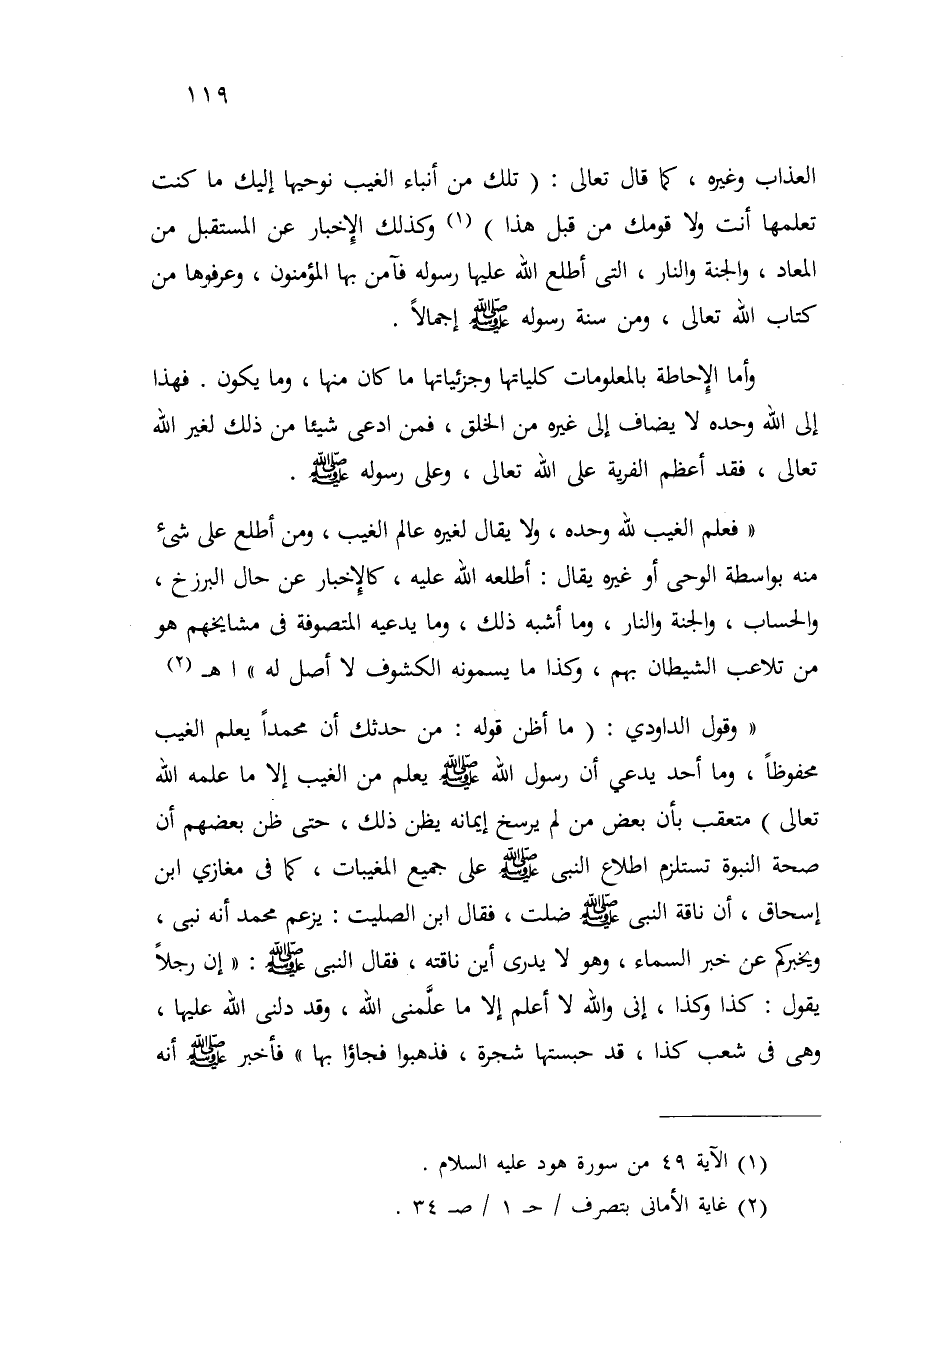 ١١٩
العذاب وغيره ، كما قال تعالى : ( تلك من أنباء الغيب نوحيها إليك ما كنت
تعلمها أنت ولا قومك من قبل هذا ) (١) وكذلك الإخبار عن المستقبل من
المعاد ، والجنة والنار ، التى أطلع الله عليها رسوله فآمن بها المؤمنون ، وعرفوها من
كتاب الله تعالى ، ومن سنة رسوله ﷺ إجمالاً .
وأما الإحاطة بالمعلومات كلياتها وجزئياتها ما كان منها ، وما يكون . فهذا
إلى الله وحده لا يضاف إلى غيره من الخلق ، فمن ادعى شيئا من ذلك لغير الله
تعالى ، فقد أعظم الفرية على الله تعالى ، وعلى رسوله ﷺ .
« فعلم الغيب لله وحده ، ولا يقال لغيره عالم الغيب ، ومن أطلع على شىء
منه بواسطة الوحى أو غيره يقال : أطلعه الله عليه ، كالإخبار عن حال البرزخ ،
والحساب ، والجنة والنار ، وما أشبه ذلك ، وما يدعيه المتصوفة فى مشايخهم هو
من تلاعب الشيطان بهم ، وكذا ما يسمونه الكشوف لا أصل له » ا هـ (٢)
« وقول الداودي : ( ما أظن قوله : من حدثك أن محمداً يعلم الغيب
محفوظاً ، وما أحد يدعي أن رسول الله ﷺ يعلم من الغيب إلا ما علمه الله
تعالى ) متعقب بأن بعض من لم يرسخ إيمانه يظن ذلك ، حتى ظن بعضهم أن
صحة النبوة تستلزم اطلاع النبى ﷺ على جميع المغيبات ، كما فى مغازي ابن
إسحاق ، أن ناقة النبى ﷺ ضلت ، فقال ابن الصليت : يزعم محمد أنه نبى ،
ويخبركم عن خبر السماء ، وهو لا يدرى أين ناقته ، فقال النبى ﷺ : « إن رجلاً
يقول : كذا وكذا ، إنى والله لا أعلم إلا ما علَّمنى الله ، وقد دلنى الله عليها ،
وهى فى شعب كذا ، قد حبستها شجرة ، فذهبوا فجاؤا بها » فأخبر ﷺ أنه
(١) الآية ٤٩ من سورة هود عليه السلام .
(٢) غاية الأمانى بتصرف / حـ ١ / صـ ٣٤ .